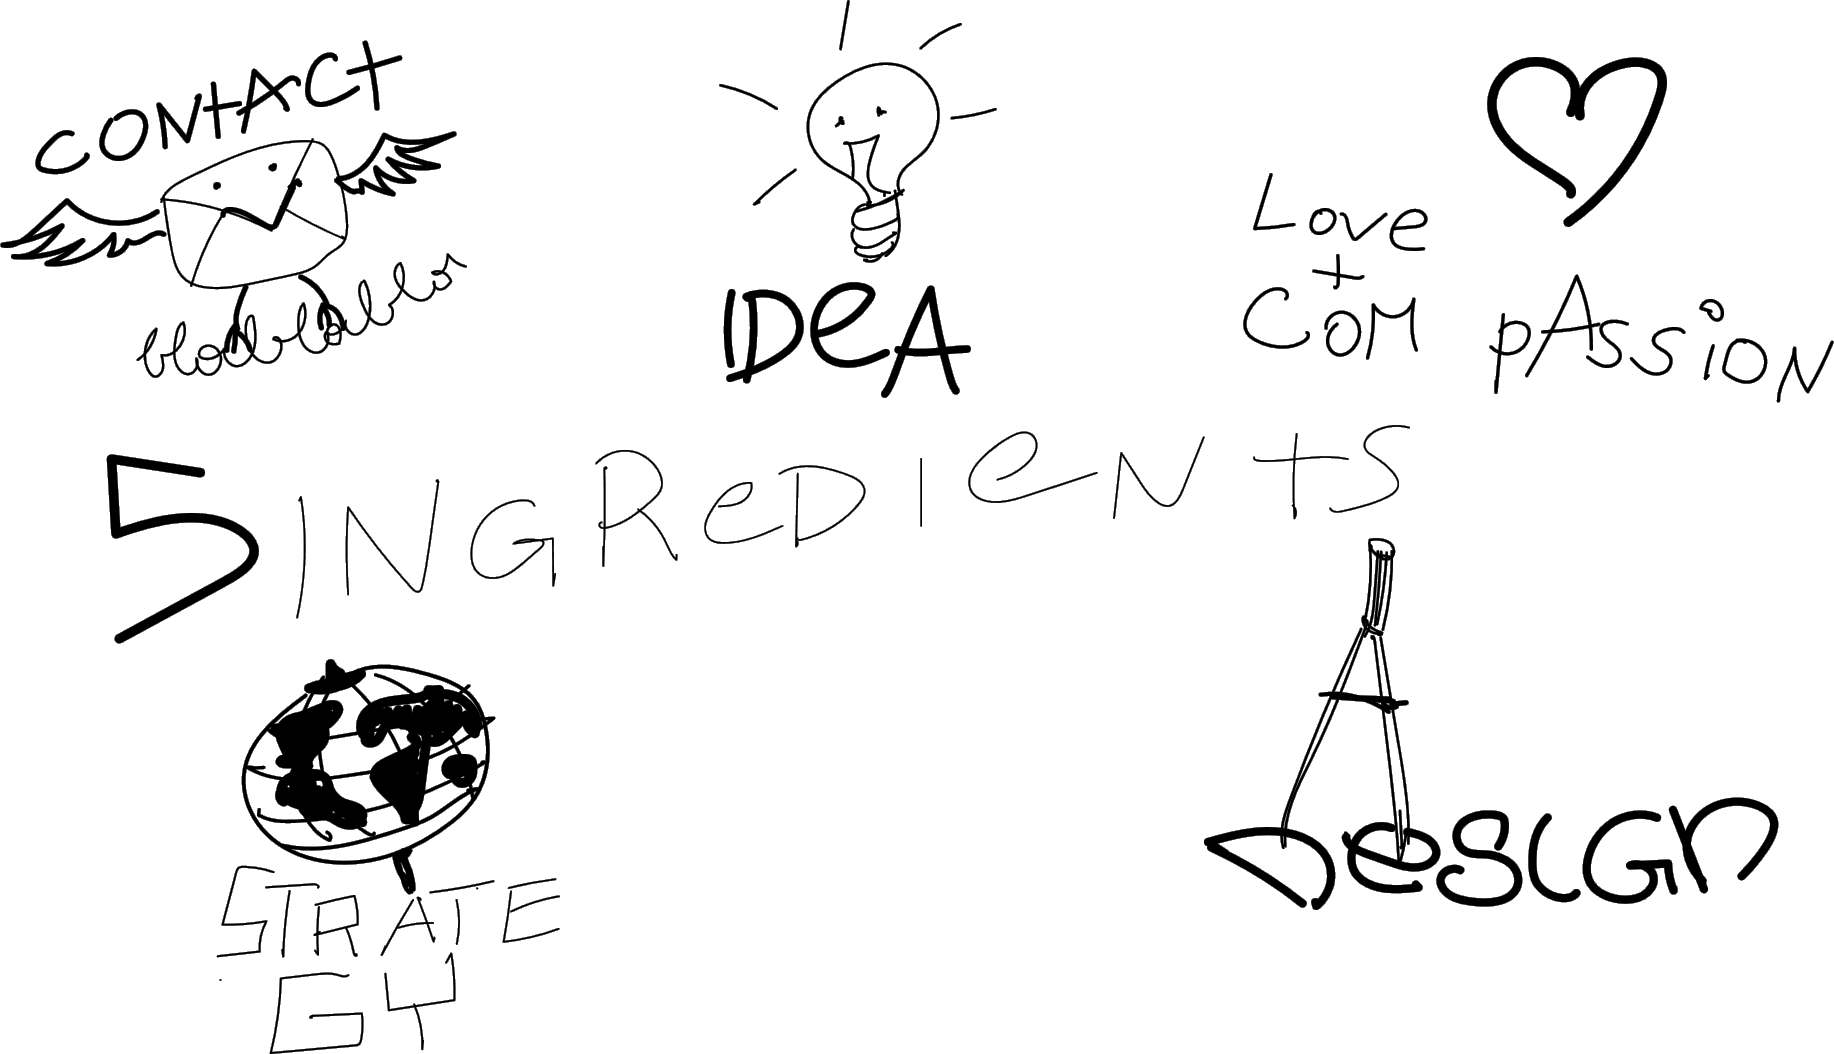 CONTACT
blablablabla
IDeA
Love
+
COM pAssiON
5 INGReDIeNtS
STRATE
GY
DesiGn